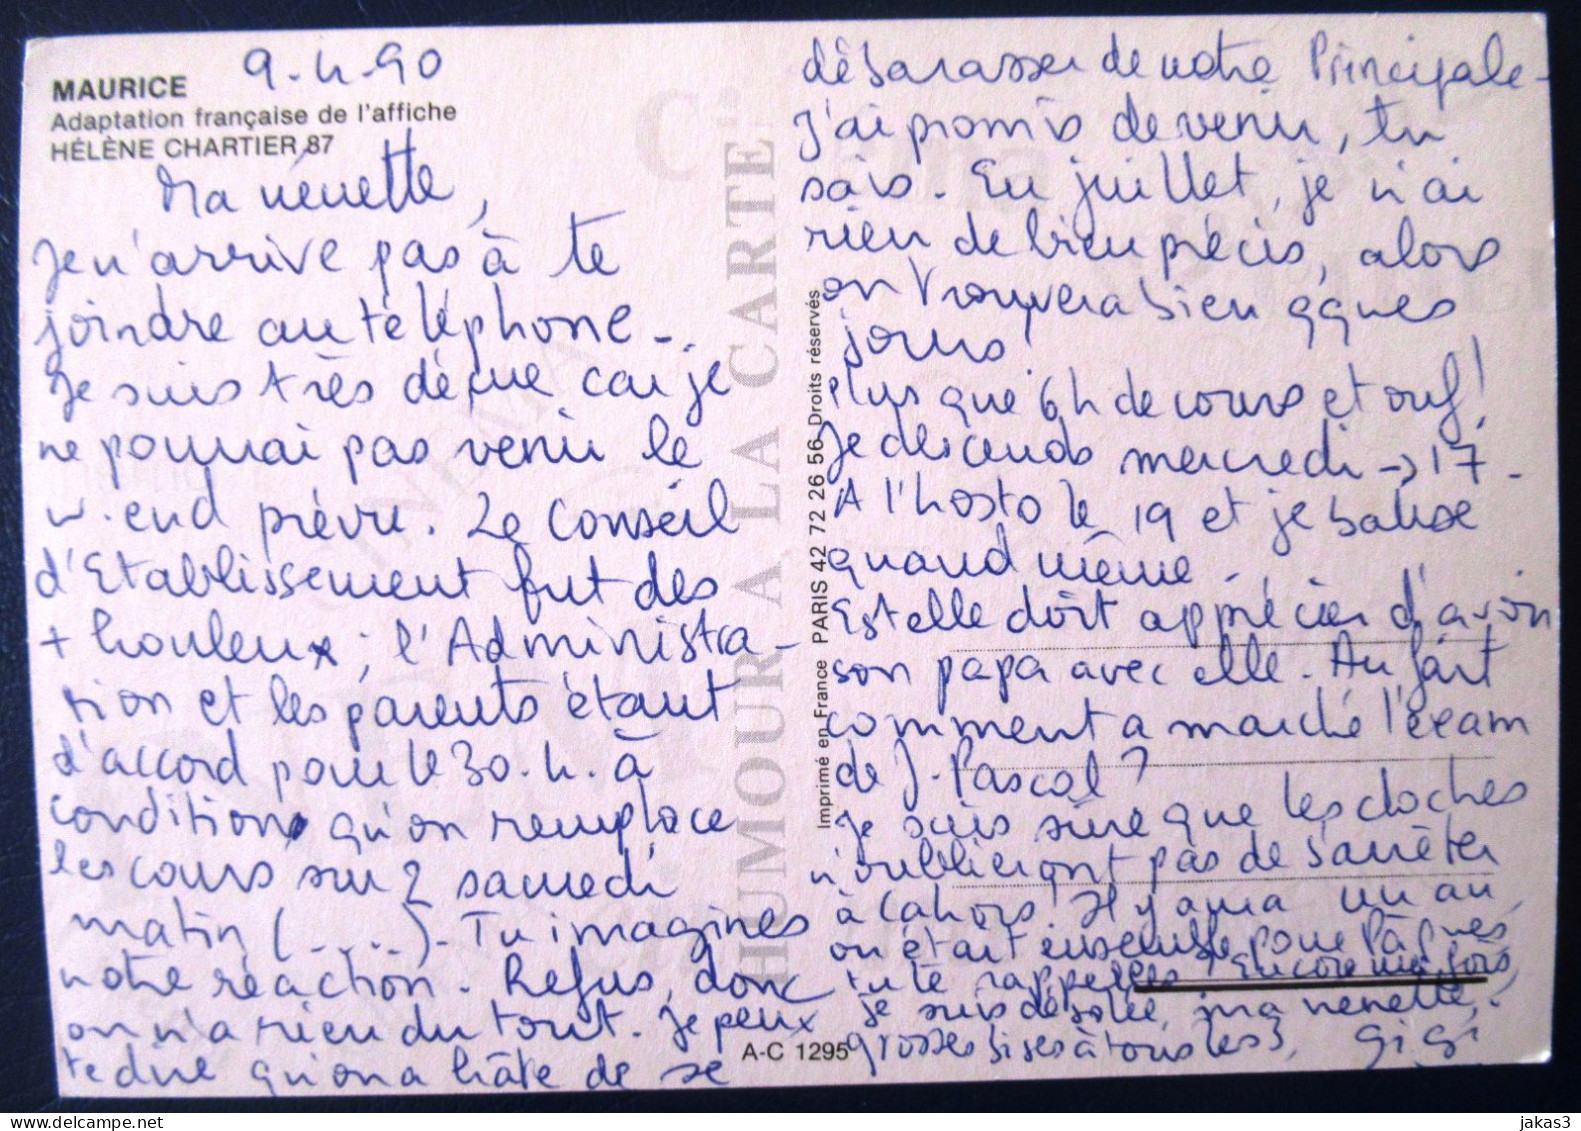 MAURICE
Adaptation française de l'affiche
HÉLÈNE CHARTIER 87
9-4-90
Ma nénette,
Je n'arrive pas à te
joindre au téléphone-.
Je suis très déçue car je
ne pourrai pas venir le
w.end prévu. Le Conseil
d'Etablissement fut des
+ houleux ; l'Administra-
tion et les parents étant
d'accord pour le 30.h. à
condition qu'on remplace
les cours sur 2 samedi
matin (.....)- Tu imagines
notre réaction. Refus, donc
on n'a rien du tout. Je peux
te dire qu'on a hâte de se
débarasser de notre Principale-
J'ai promis de venir, tu
sais. En juillet, je n'ai
rien de bien précis, alors
on trouvera bien qques
jours!
Plus que 6h de cours et ouf!
Je descends mercredi → 17-
A l'hosto le 19 et je baise
quand même-
Estelle doit apprécier d'avoir
son papa avec elle. Au fait
comment a marché l'exam
de J. Pascal?
Je suis sûre que les cloches
n'oublieront pas de s'arrêter
à Cahors! Il y aura un an
on était ensemble pour Pâques,
tu te rappelles? Encore une fois,
je suis désolée, ma nénette,
grosses bises à tous les 3, Gigi
HUMOUR A LA CARTE
Imprimé en France PARIS 42 72 26 56 Droits réservés
A-C 1295
jakas3